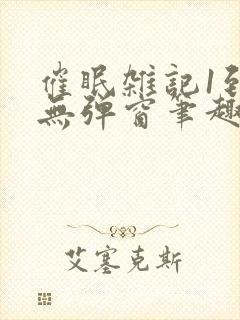 催眠雑記1到
無彈窗筆趣
艾塞克斯